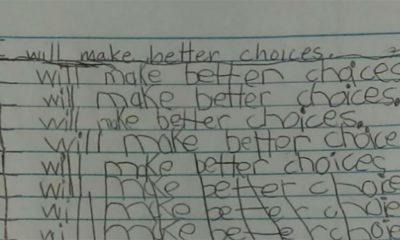 I will make better choices.
will make better choices
will make better choices.
will make better choices.
will make better choice
will make better choices
will make better choie
will make better choie
will make better choie